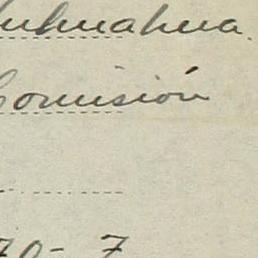 Chihuahua.
Comisión
70- 7